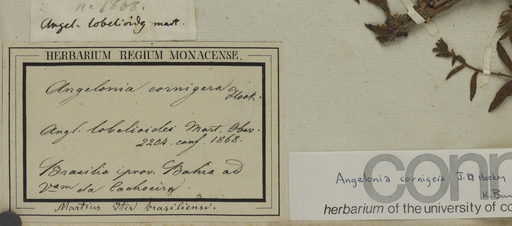 nº 1868.
Angel. lobelioidę mart.
HERBARIUM REGIUM MONACENSE.
Angelonia cornigera Hook.
Angl. lobelioides Mart. Obsv.
2204. conf. 1868.
Brasilia (prov. Bahia ad
Vam da Cachoeira.
Martius Iter brasiliense.
conn
Angelonia cornigera J.D Hooker
K.
herbarium of the university of co